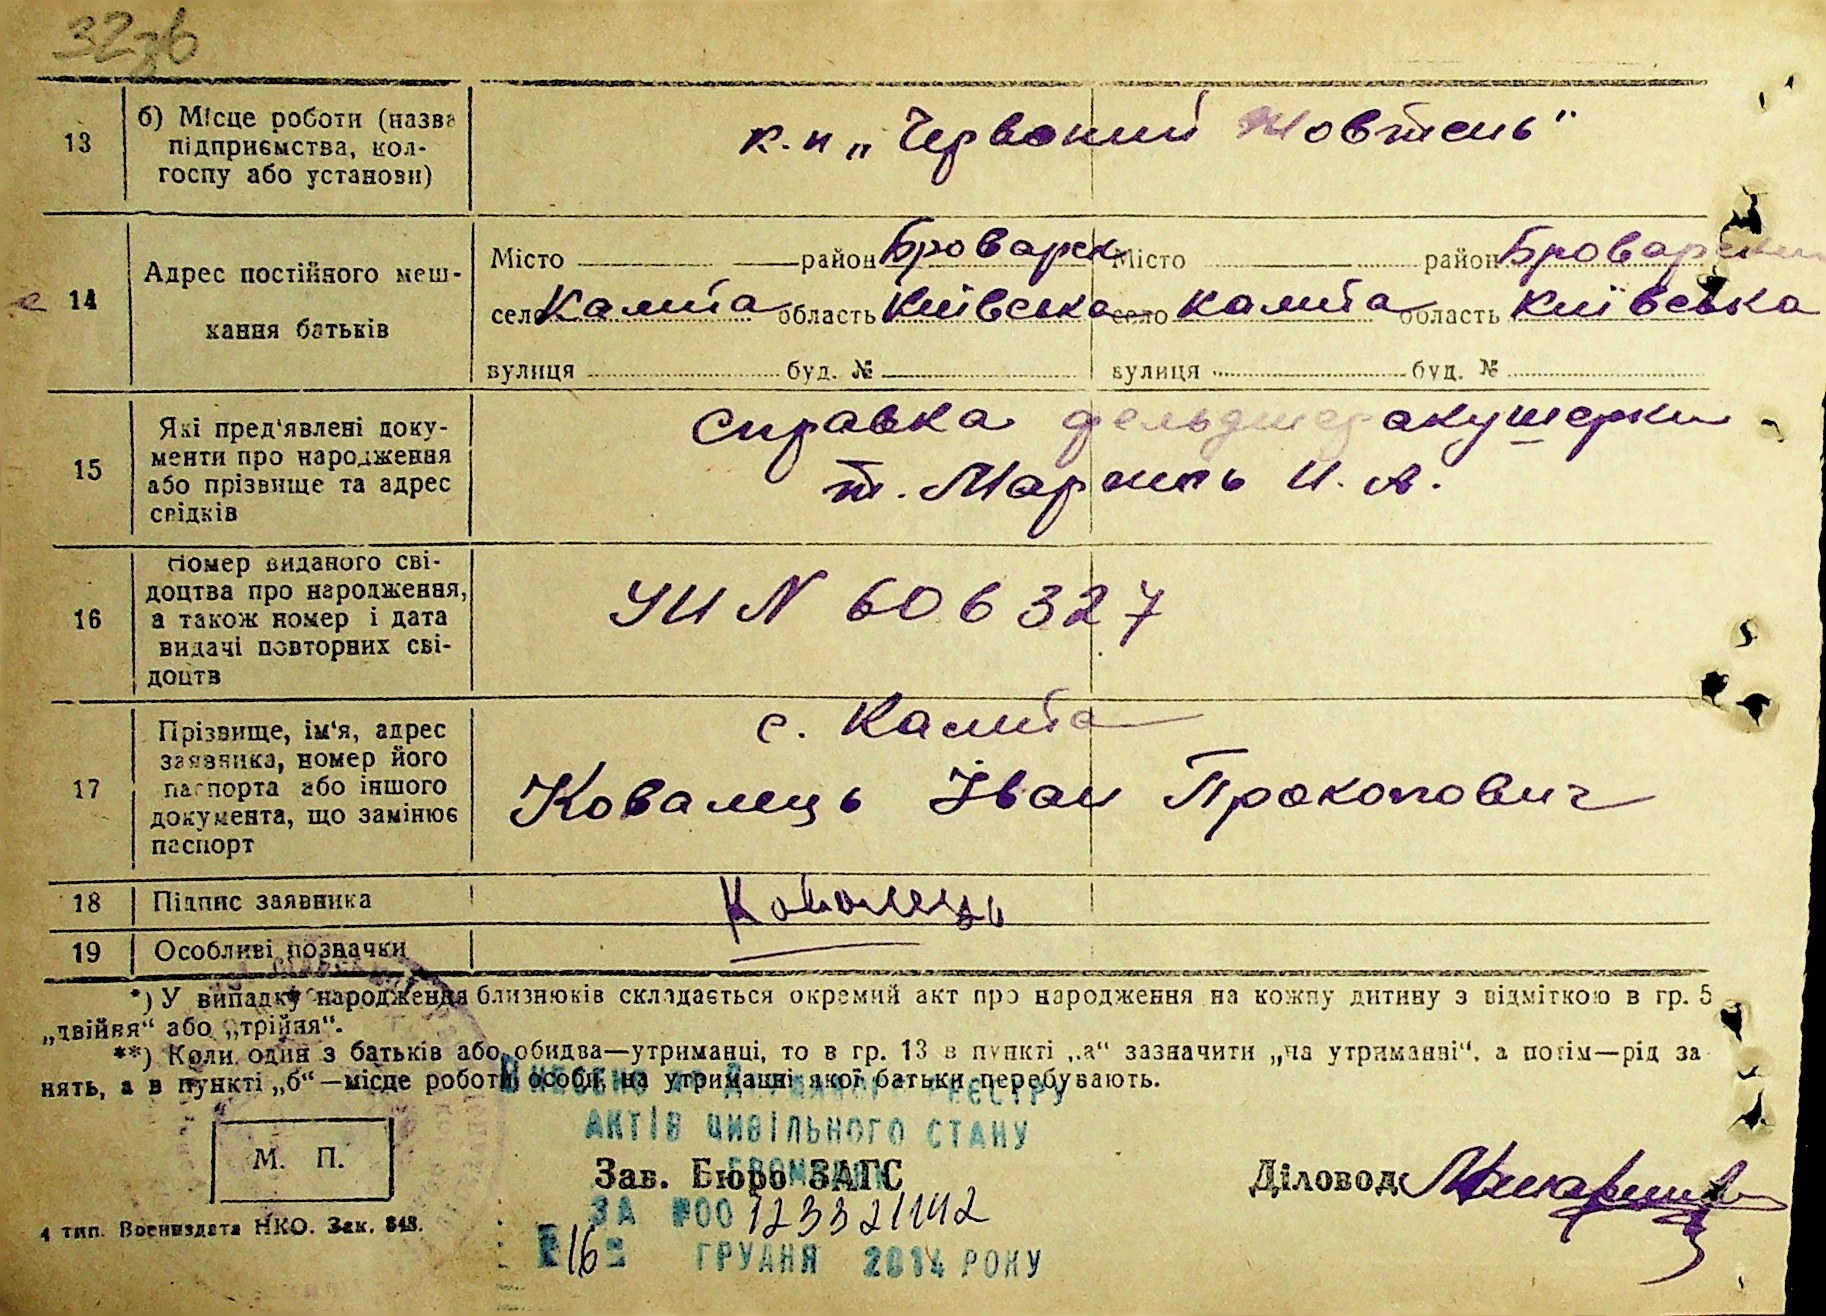 32зв
13 б) Місце роботи (назва
підприємства, кол-
госпу або установи)
к.н „Червоний Жовтень"
14 Адрес постійного меш-
кання батьків
Місто район Броварск Місто район Броварский
село Калита область Київська село Калита область Київська
вулиця буд. № вулиця буд. №
15 Які пред'явлені доку-
менти про народження
або прізвище та адрес
свідків
справка фельдшеракушерки
т. И. А.
16 Номер виданого сві-
доцтва про народження,
а також номер і дата
видачі повторних сві-
доцтв
УИ N 606327
17 Прізвище, ім'я, адрес
заявника, номер його
паспорта або іншого
документа, що замінює
паспорт
с. Калита
Ковалець Іван Прокопович
18 Підпис заявника
Ковалець
19 Особливі позначки
*) У випадку народження близнюків складається окремий акт про народження на кожну дитину з відміткою в гр. 5
„двійня“ або „трійня“.
**) Коли один з батьків або обидва—утриманці, то в гр. 13 в пункті „а“ зазначити „на утриманні“, а потім—рід за
нять, а в пункті „б“—місце роботи особи, на утриманні якої батьки перебувають.
Внесено до Державного реєстру
актів цивільного стану
громадян
М. П.
Зав. Бюро ЗАГС
Діловод
за №00
4 тип. Воениздата НКО. Зак. 848.
16 грудня 2014 року